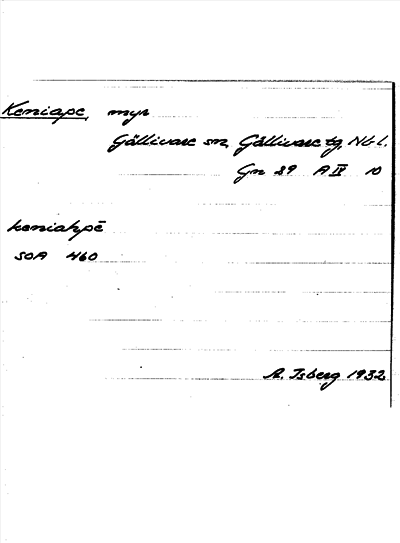 Keniape, myr
Gällivare sn, Gällivare tg, Nbl.
Gn 29 A IV 10
keniahpē
SOA 460
A. Isberg 1932